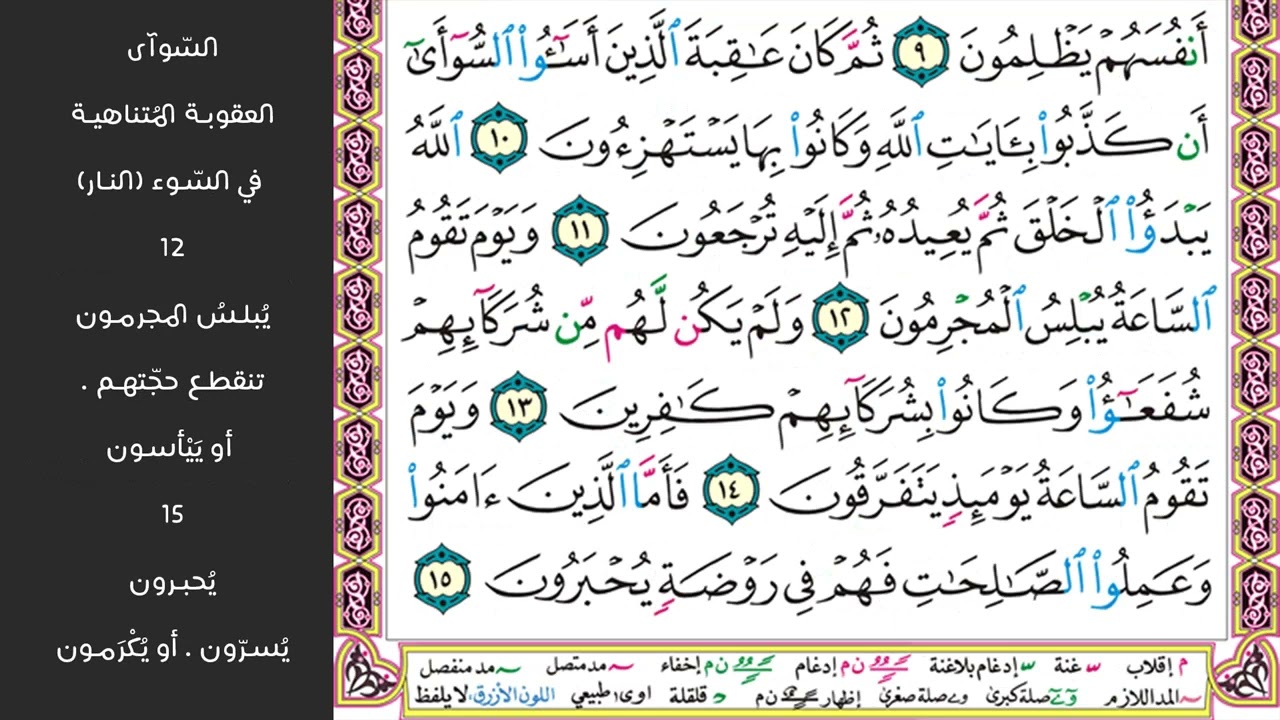 أَنفُسَهُمْ يَظْلِمُونَ ٩ ثُمَّ كَانَ عَـٰقِبَةَ ٱلَّذِينَ أَسَـٰٓـُٔوا۟ ٱلسُّوٓأَىٰٓ
أَن كَذَّبُوا۟ بِـَٔايَـٰتِ ٱللَّهِ وَكَانُوا۟ بِهَا يَسْتَهْزِءُونَ ١٠ ٱللَّهُ
يَبْدَؤُا۟ ٱلْخَلْقَ ثُمَّ يُعِيدُهُۥ ثُمَّ إِلَيْهِ تُرْجَعُونَ ١١ وَيَوْمَ تَقُومُ
ٱلسَّاعَةُ يُبْلِسُ ٱلْمُجْرِمُونَ ١٢ وَلَمْ يَكُن لَّهُم مِّن شُرَكَآئِهِمْ
شُفَعَـٰٓؤُا۟ وَكَانُوا۟ بِشُرَكَآئِهِمْ كَـٰفِرِينَ ١٣ وَيَوْمَ
تَقُومُ ٱلسَّاعَةُ يَوْمَئِذٍ يَتَفَرَّقُونَ ١٤ فَأَمَّا ٱلَّذِينَ ءَامَنُوا۟
وَعَمِلُوا۟ ٱلصَّـٰلِحَـٰتِ فَهُمْ فِى رَوْضَةٍ يُحْبَرُونَ ١٥
م إقلاب غنة إدغام بلاغنة ن م إدغام ن م إخفاء مد متصل مد منفصل
المد اللازم صلة كبرى صلة صغرى إظهار ن م قلقلة اوى طبيعي اللون الأزرق لا يلفظ
السّوآى
العقوبة المُتناهية
في السّوء (النار)
12
يُبلسُ المجرمون
تنقطع حجّتهم .
أو يَيْأسون
15
يُحبرون
يُسرّون . أو يُكْرَمون